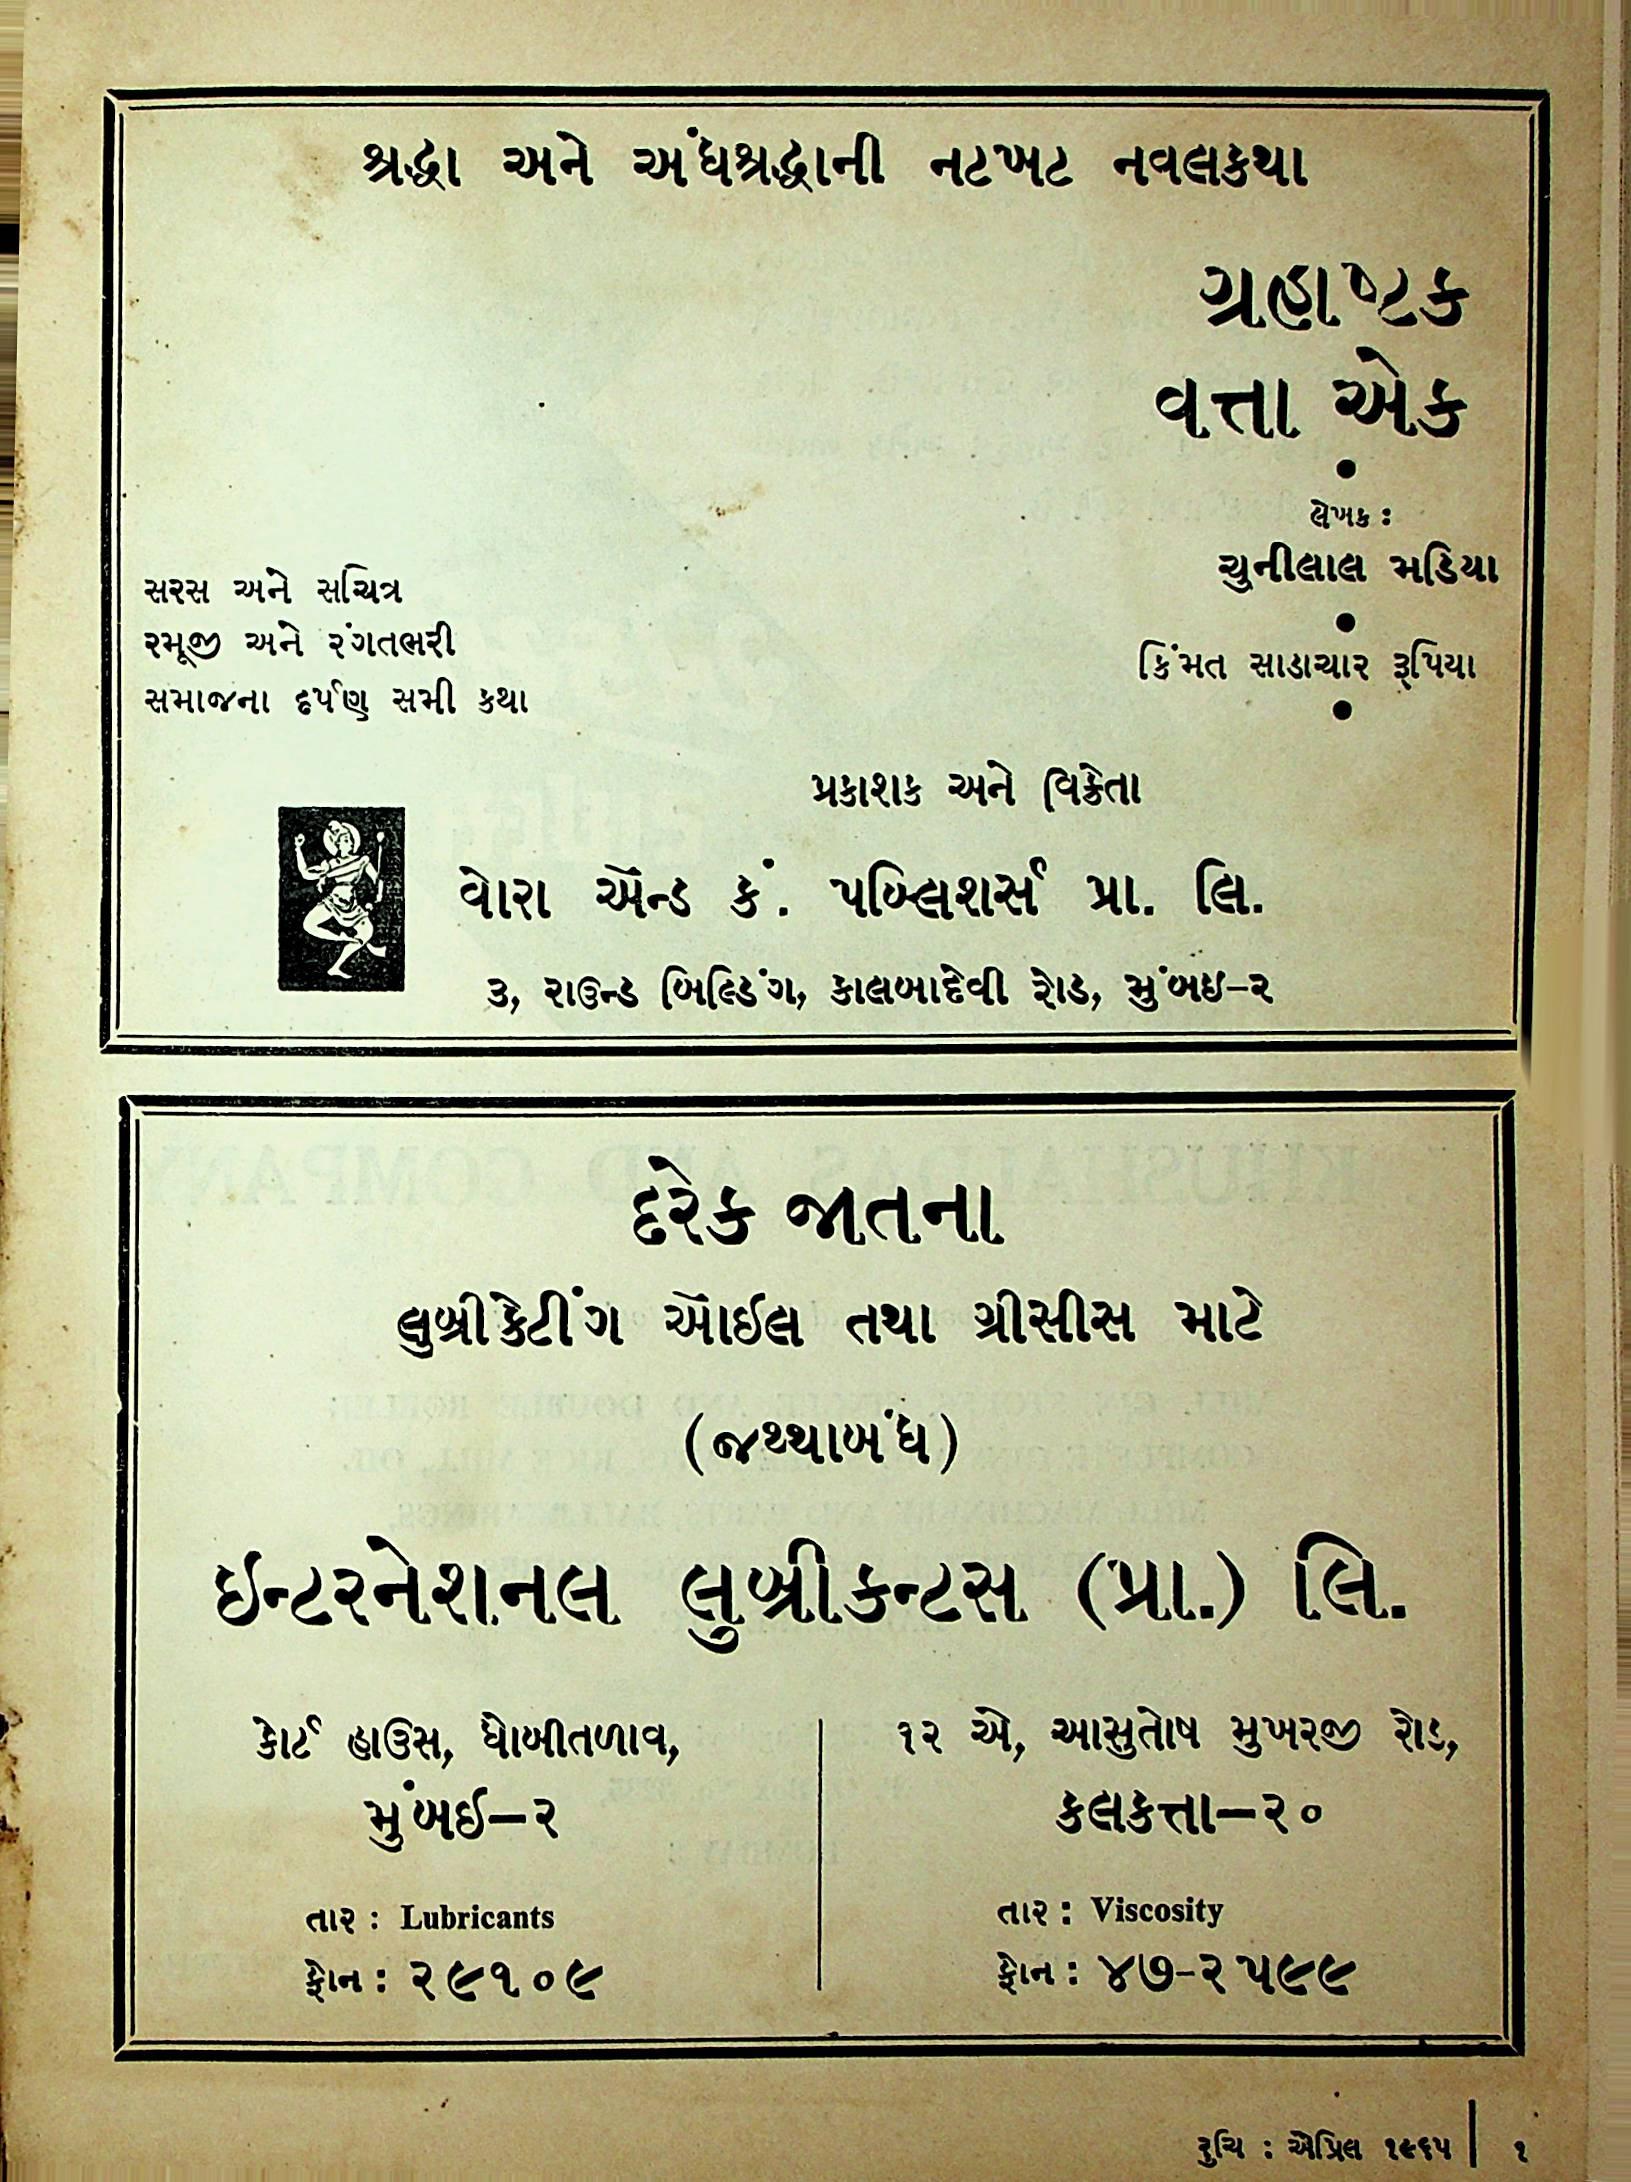 શ્રદ્ધા અને અંધશ્રદ્ધાની નટખટ નવલકથા
ગ્રહાષ્ટક
વત્તા એક
લેખક :
ચુનીલાલ મડિયા
કિંમત સાડાચાર રૂપિયા
સરસ અને સચિત્ર
રમૂજી અને રંગતભરી
સમાજના દર્પણ સમી કથા
પ્રકાશક અને વિક્રેતા
વોરા ઍન્ડ કં. પબ્લિશર્સ પ્રા. લિ.
૩, રાઉન્ડ બિલ્ડિંગ, કાલબાદેવી રોડ, મુંબઇ-૨
દરેક જાતના
લુબ્રીકેટીંગ ઑઈલ તથા ગ્રીસીસ માટે
(જથ્થાબંધ)
ઇન્ટરનેશનલ લુબ્રીકન્ટસ (પ્રા.) લિ.
કોર્ટ હાઉસ, ધોબીતળાવ,
મુંબઇ–૨
તાર : Lubricants
ફોન : ૨૯૧૦૯
૧૨ એ, આસુતોષ મુખરજી રોડ,
કલકત્તા–૨૦
તાર : Viscosity
ફોન : ૪૭-૨૫૯૯
રુચિ : ઍપ્રિલ ૧૯૬૫ | ૧